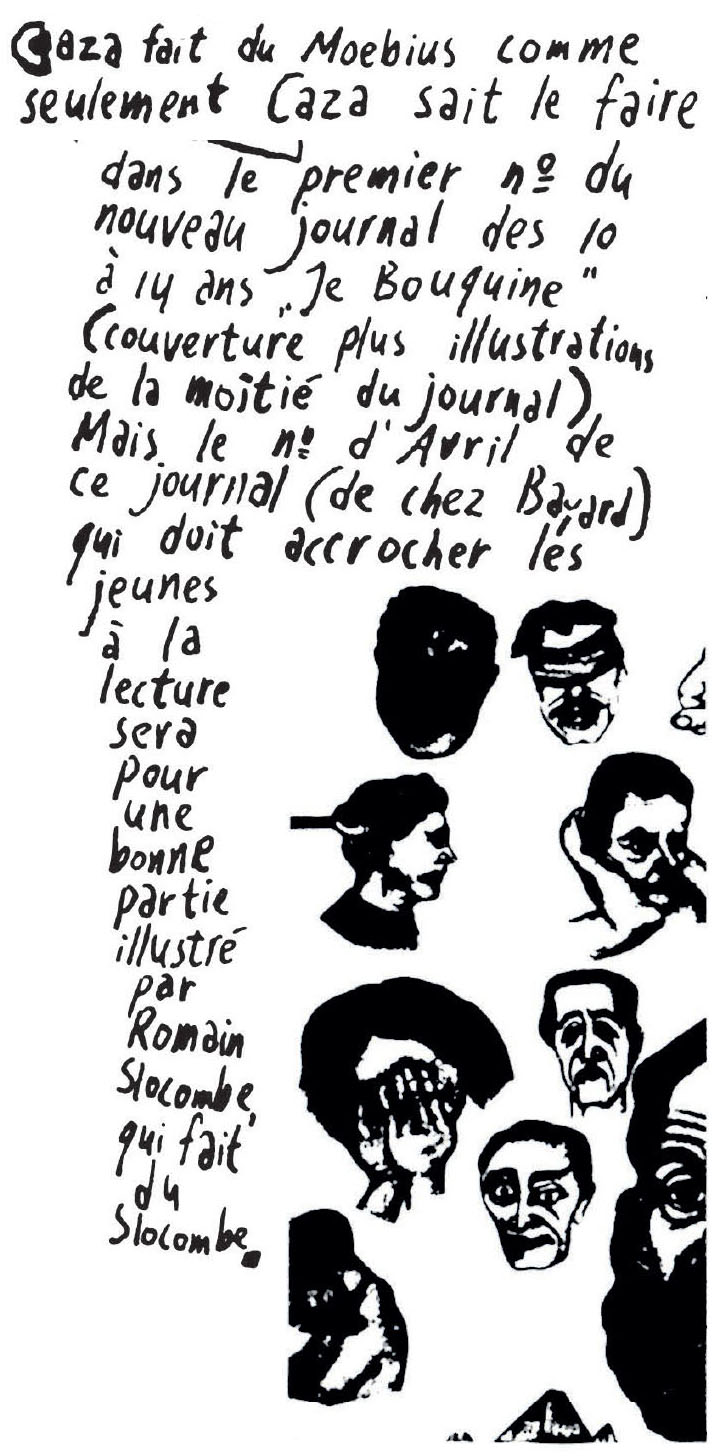 Caza fait du Moebius comme
seulement Caza sait le faire
dans le premier nº du
nouveau journal des 10
à 14 ans „Je Bouquine"
(couverture plus illustrations
de la moîtié du journal)
Mais le nº d'Avril de
ce journal (de chez Bayard)
qui doit accrocher les
jeunes
à la
lecture
sera
pour
une
bonne
partie
illustré
par
Romain
Slocombe,
qui fait
du
Slocombe.